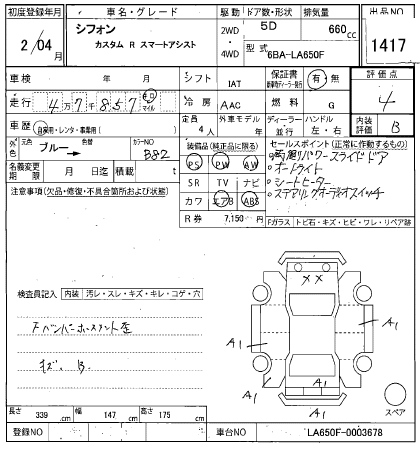 初度登録年月 車名・グレード 駆動 ドア数・形状 排気量 出品NO
2/04月 シフォン 2WD 5D 660cc 1417
カスタム R スマートアシスト 4WD 型式 6BA-LA650F
車検 年 月 シフト IAT 保証書 有・無 評価点
走行 4万7千857 キロ マイル 4
冷房 AAC 燃料 G
車歴 自家用・レンタ・事業用( ) 定員 4人 外車モデル 年 ディーラー 並行 ハンドル 左・右 内装評価 B
外色 元色 ブルー 色替 カラーNO B82
装備品(純正品に限る) セールスポイント(正常に作動するもの)
PS PW AW
両側パワースライドドア
名義変更期限 月 日迄 積載 t
SR TV ナビ
オートライト
注意事項(欠品・修復・不具合箇所および状態)
カワ エアB ABS
シートヒーター
R券 7,150円
ステアリングオーディオスイッチ
Fガラス トビ石・キズ・ヒビ・ワレ・リペア跡
検査員記入 内装 汚レ・スレ・キズ・キレ・コゲ・穴
A1
XX
A1
A1
キズ、B
A1
A1
スペア
長さ 339cm 幅 147cm 高さ 175cm
登録NO 車台NO LA650F-0003678